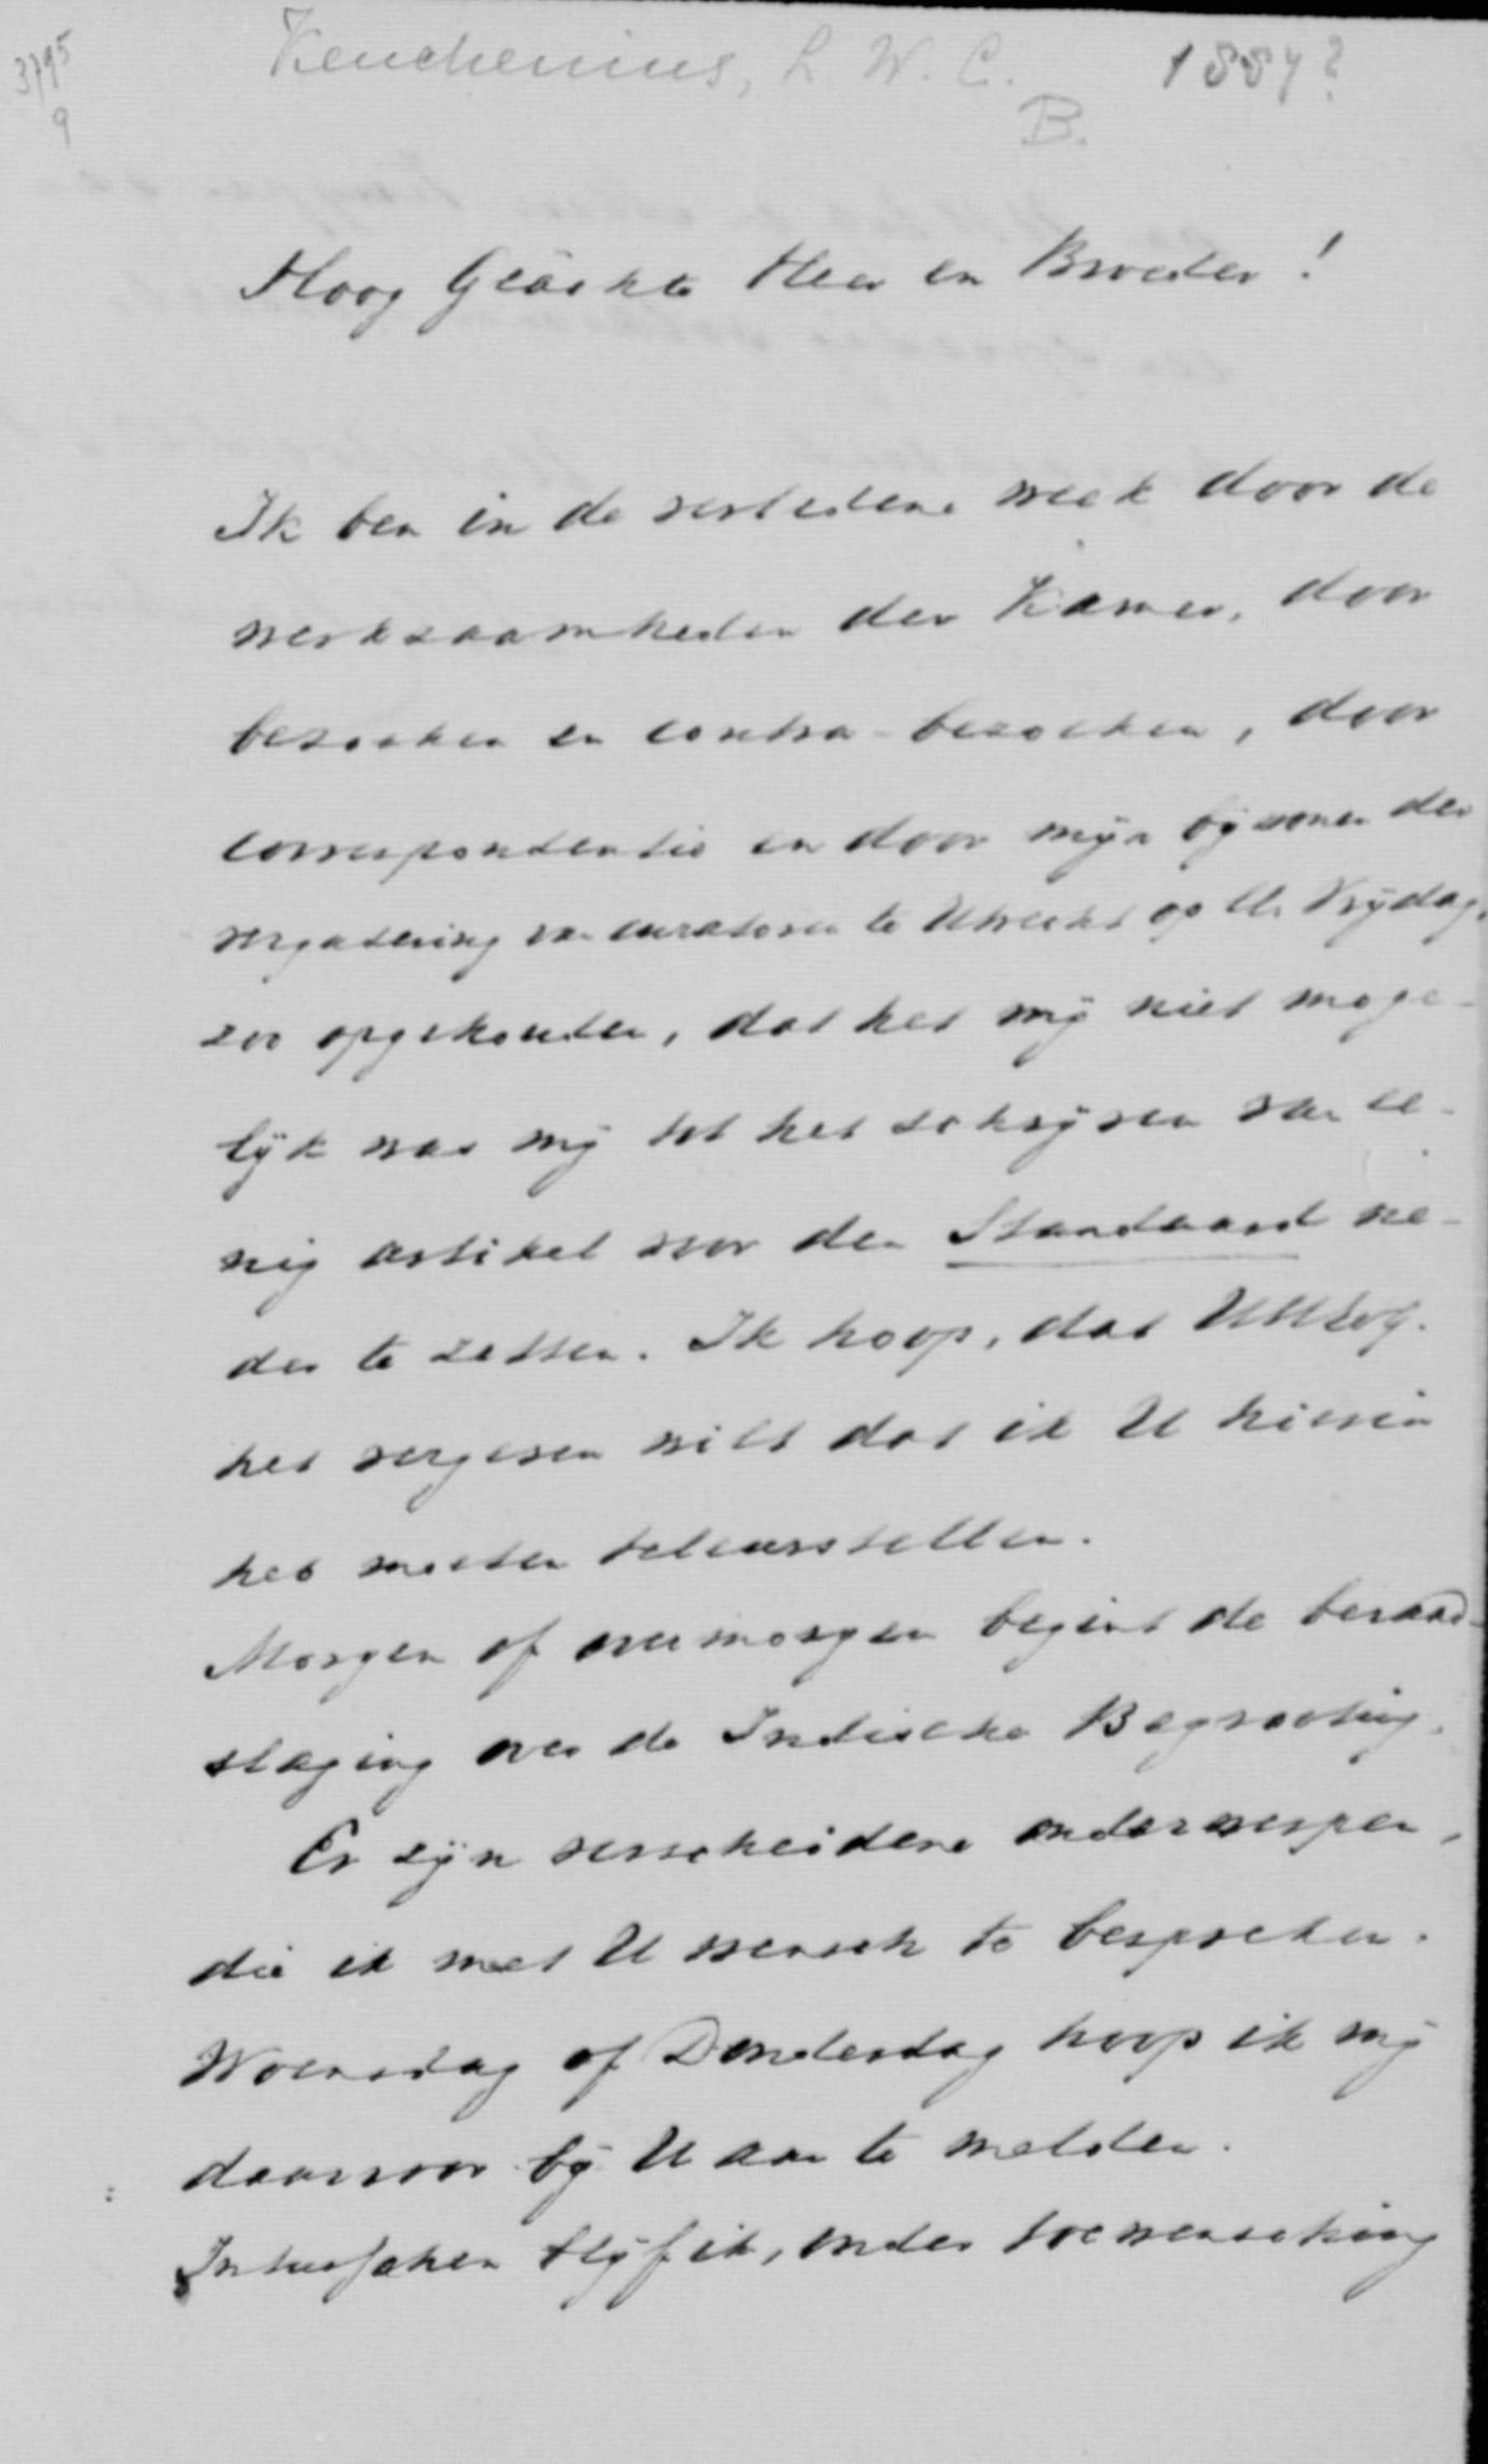 3795
9
Keuchenius, L. W. C. 1884?
B.
Hoog Geachte Heer en Broeder!
Ik ben in de verledene week door de
werkzaamheden der Kamer, door
bezoeken en contra-bezoeken, door
correspondentie en door mijn bijwonen der
vergadering van curatoren te Utrecht op ll. Vrijdag,
zoo opgehouden, dat het mij niet moge-
lijk was mij tot het schrijven van ee-
nig artikel voor den Standaard ne-
der te zetten. Ik hoop, dat
het vergeven wilt dat ik U hierin
heb moeten teleurstellen.
Morgen of overmorgen begint de beraad-
slaging over de Indische Begrooting.
Er zijn verscheidene onderwerpen,
die ik met U wensch te bespreken.
Woensdag of Donderdag hoop ik mij
daarvoor bij U aan te melden.
Intusschen blijf ik, onder toewensching